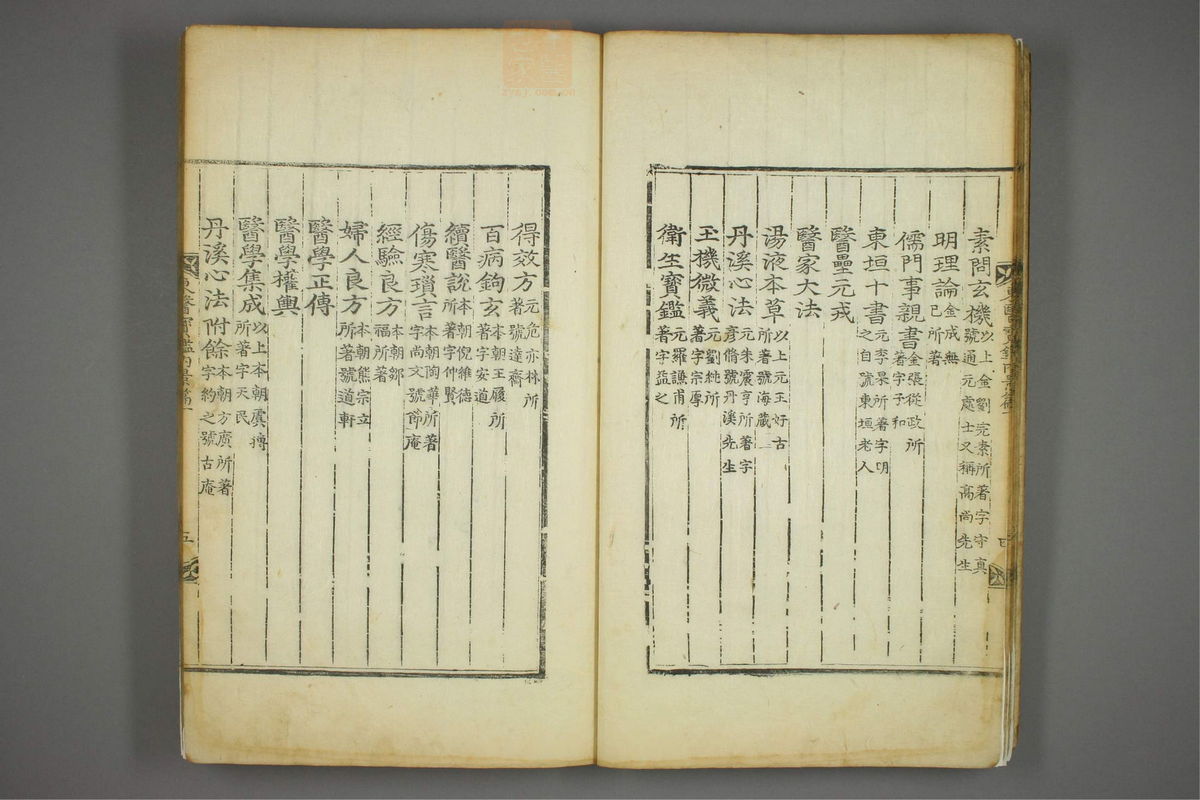 素問玄機以上金劉完素所著字守真號通元處士又稱高尚先生
明理論金成無已所著
儒門事親書金張從政所著字子和
東垣十書元李杲所著字明之自號東垣老人
醫壘元戎
醫家大法
湯液本草以上元王好古所著號海藏
丹溪心法元朱震亨所著字彥脩號丹溪先生
玉機微義元劉純所著字宗厚
衛生寶鑑元羅謙甫所著字益之
得效方元危亦林所著號達齋
百病鉤玄本朝王履所著字安道
續醫說本朝倪維德所著字仲賢
傷寒瑣言本朝陶華所著字尚文號節庵
經驗良方本朝鄒福所著
婦人良方本朝熊宗立所著號道軒
醫學正傳
醫學權輿
醫學集成以上本朝虞摶所著字天民
丹溪心法附餘本朝方廣所著字約之號古庵
東醫寶鑑內景篇一
五